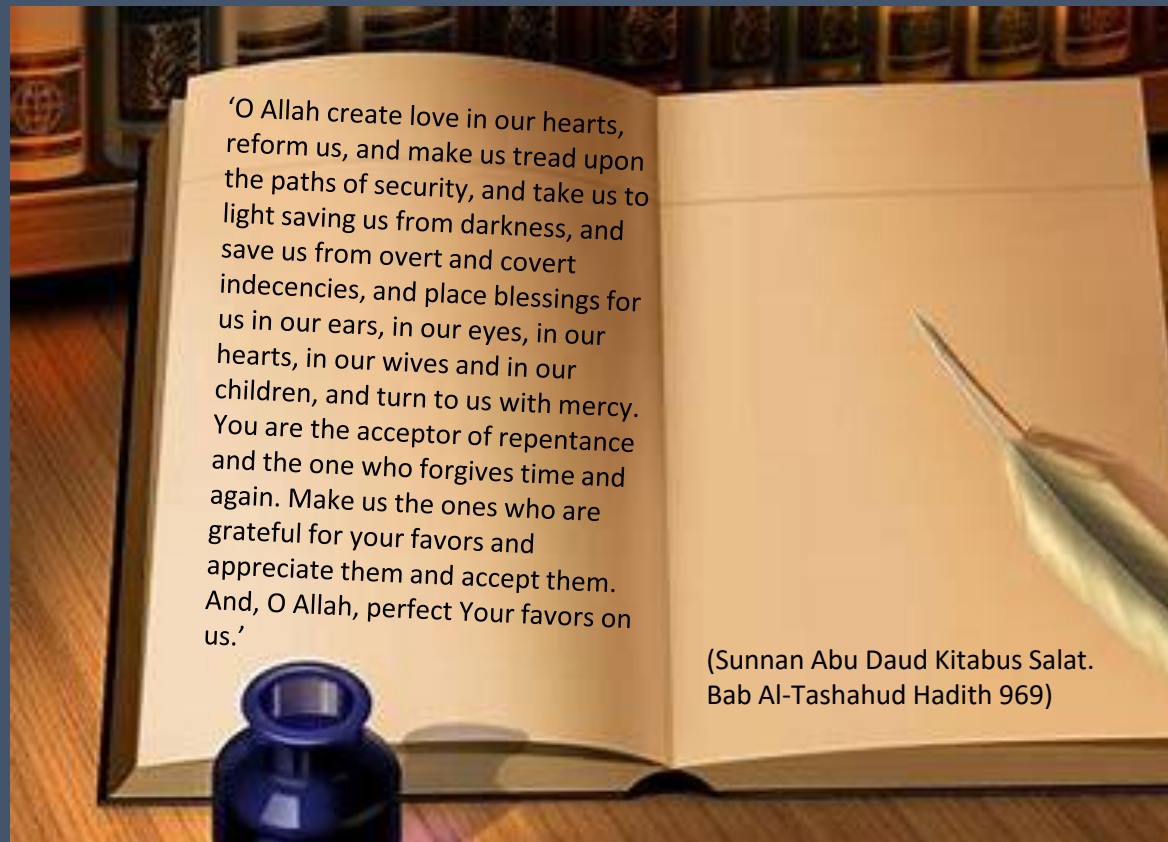 ‘O Allah create love in our hearts,
reform us, and make us tread upon
the paths of security, and take us to
light saving us from darkness, and
save us from overt and covert
indecencies, and place blessings for
us in our ears, in our eyes, in our
hearts, in our wives and in our
children, and turn to us with mercy.
You are the acceptor of repentance
and the one who forgives time and
again. Make us the ones who are
grateful for your favors and
appreciate them and accept them.
And, O Allah, perfect Your favors on
us.’
(Sunnan Abu Daud Kitabus Salat.
Bab Al-Tashahud Hadith 969)